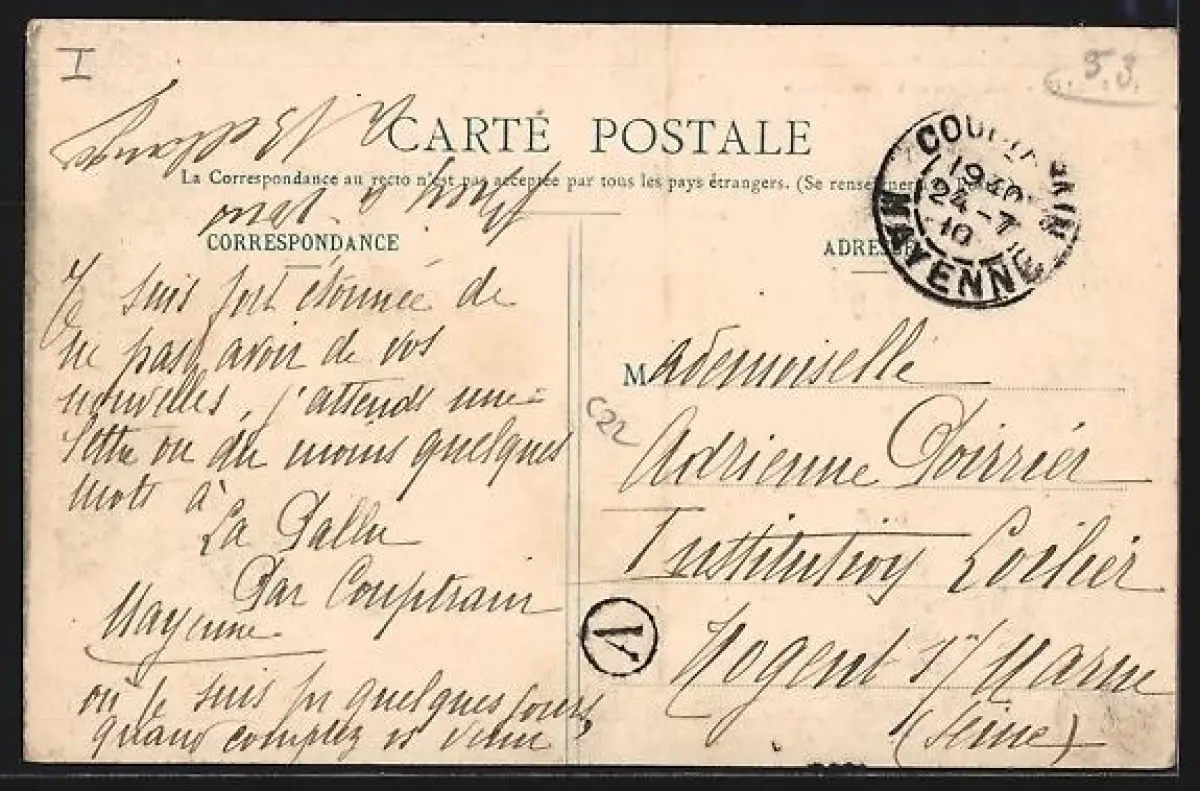 I
CARTE POSTALE
La Correspondance au recto n'est pas acceptée par tous les pays étrangers. (Se
CORRESPONDANCE
ADRE
MAYENNE
24-7
10
Je suis fort étonnée de
ne pas avoir de vos
nouvelles, j'attends une
lettre ou du moins quelques
mots à
La Pallu
Par Couptrain
Mayenne
où je suis pr quelques jours
quand comptez vs venir
Mademoiselle
Adrienne Poirrier
Institution
Nogent s/ Marne
(Seine)
A